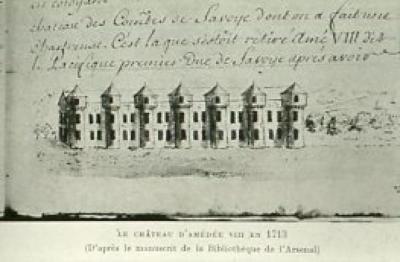 en costoyant
chateau des Comtes de Savoye dont on a fait une
chartreuse. C'est la que s'estoit retiré Amé VIII dit
le Pacifique premier Duc de Savoye apres avoir
LE CHÂTEAU D'AMÉDÉE VIII EN 1713
(D'après le manuscrit de la Bibliothèque de l'Arsenal)